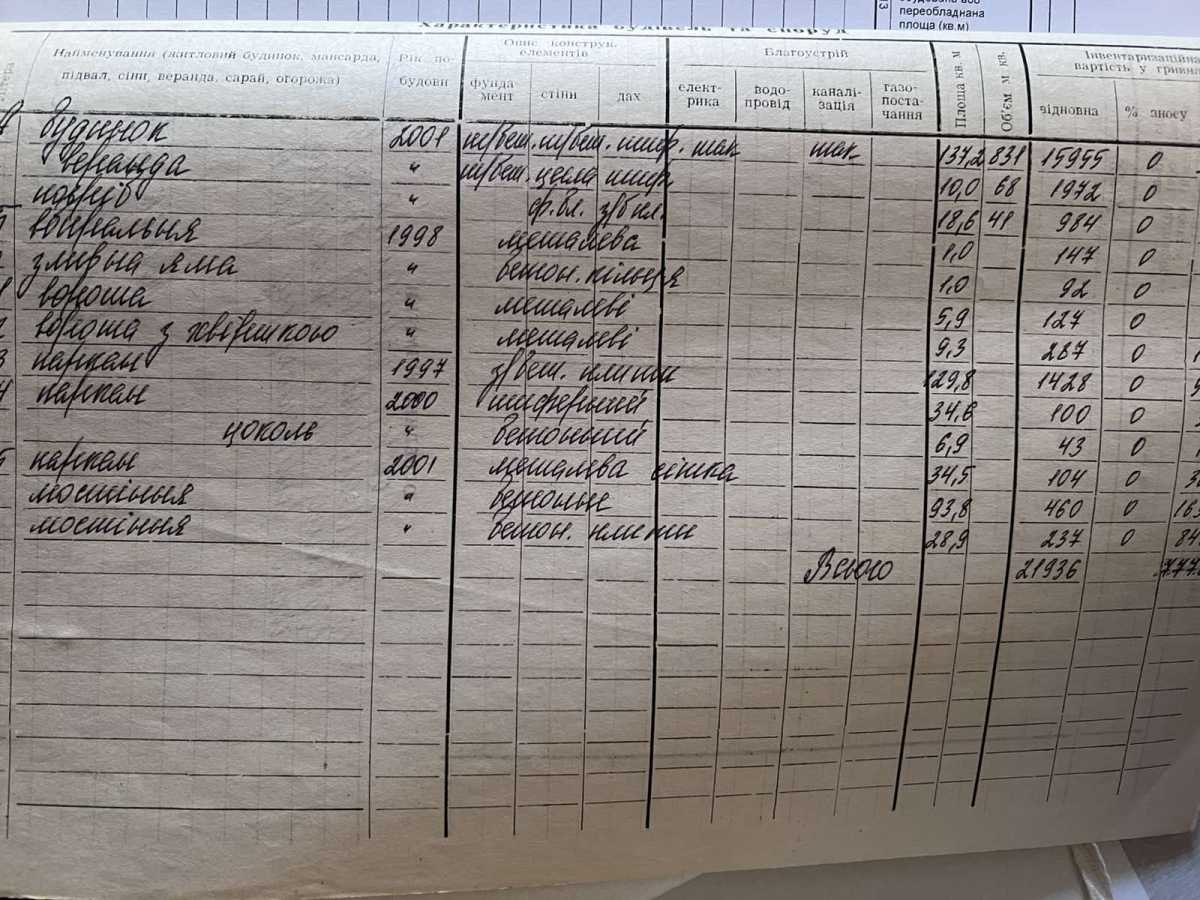 13
збудована або
переобладнана
площа (кв.м)
Характеристика будівель та споруд
Найменування (житловий будинок, мансарда, підвал, сіни, веранда, сарай, огорожа)
Рік побудови
Опис конструк. елементів
фундамент стіни дах
Благоустрій
електрика водопровід каналізація газопостачання
Площа кв. м
Об'єм м кв.
Інвентаризаційна вартість у гривн
відновна % зносу
будинок 2001 шиф. так так 137,2 831 15955 0
веранда " цегла шиф 10,0 68 1972 0
погріб " ф.бл. з/б пл. 18,6 41 984 0
вбиральня 1998 металева 1,0 147 0
зливна яма " бетон. кільця 1,0 92 0
1 ворота " металеві 5,9 127 0
2 ворота з хвірткою " металеві 9,3 287 0
3 паркан 1997 з/бет. плити 129,8 1428 0
4 паркан 2000 шиферний 34,6 100 0
цоколь " бетонний 6,9 43 0
5 паркан 2001 металева сітка 34,5 104 0
мостіння " бетонне 93,8 460 0 163
мостіння " бетон. плитки 28,9 237 0 84
Всього 21936 777